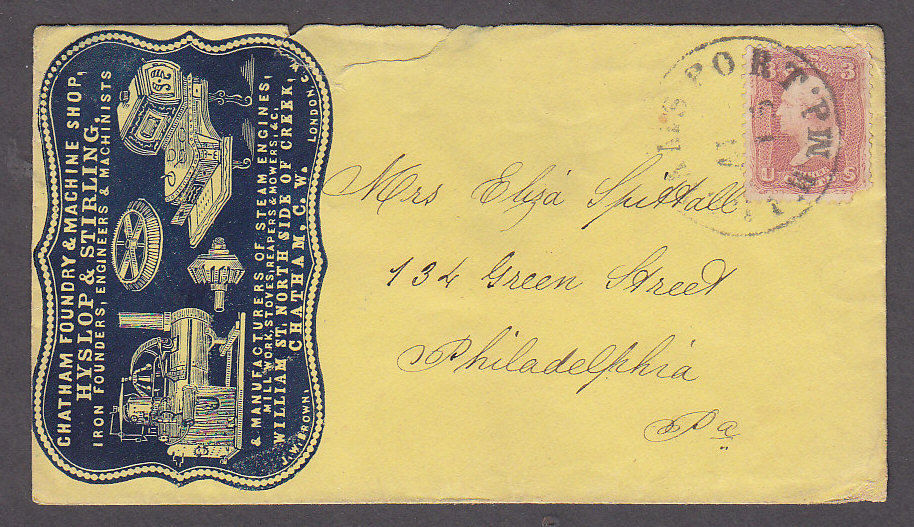 CHATHAM FOUNDRY & MACHINE SHOP,
HYSLOP & STIRLING,
IRON FOUNDERS, ENGINEERS & MACHINISTS
& MANUFACTURERS OF STEAM ENGINES,
MILL WORK, STOVES, REAPERS & MOWERS, &C,
WILLIAM ST. NORTH SIDE OF CREEK,
CHATHAM, C. W.
LONDON
PORT. P
3
U S
Mrs Eliza Spittall
134 Green Street
Philadelphia
Pa